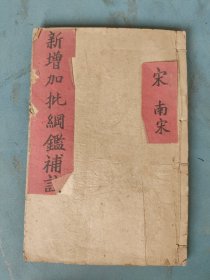 新增加批綱鑑補註
宋 南宋